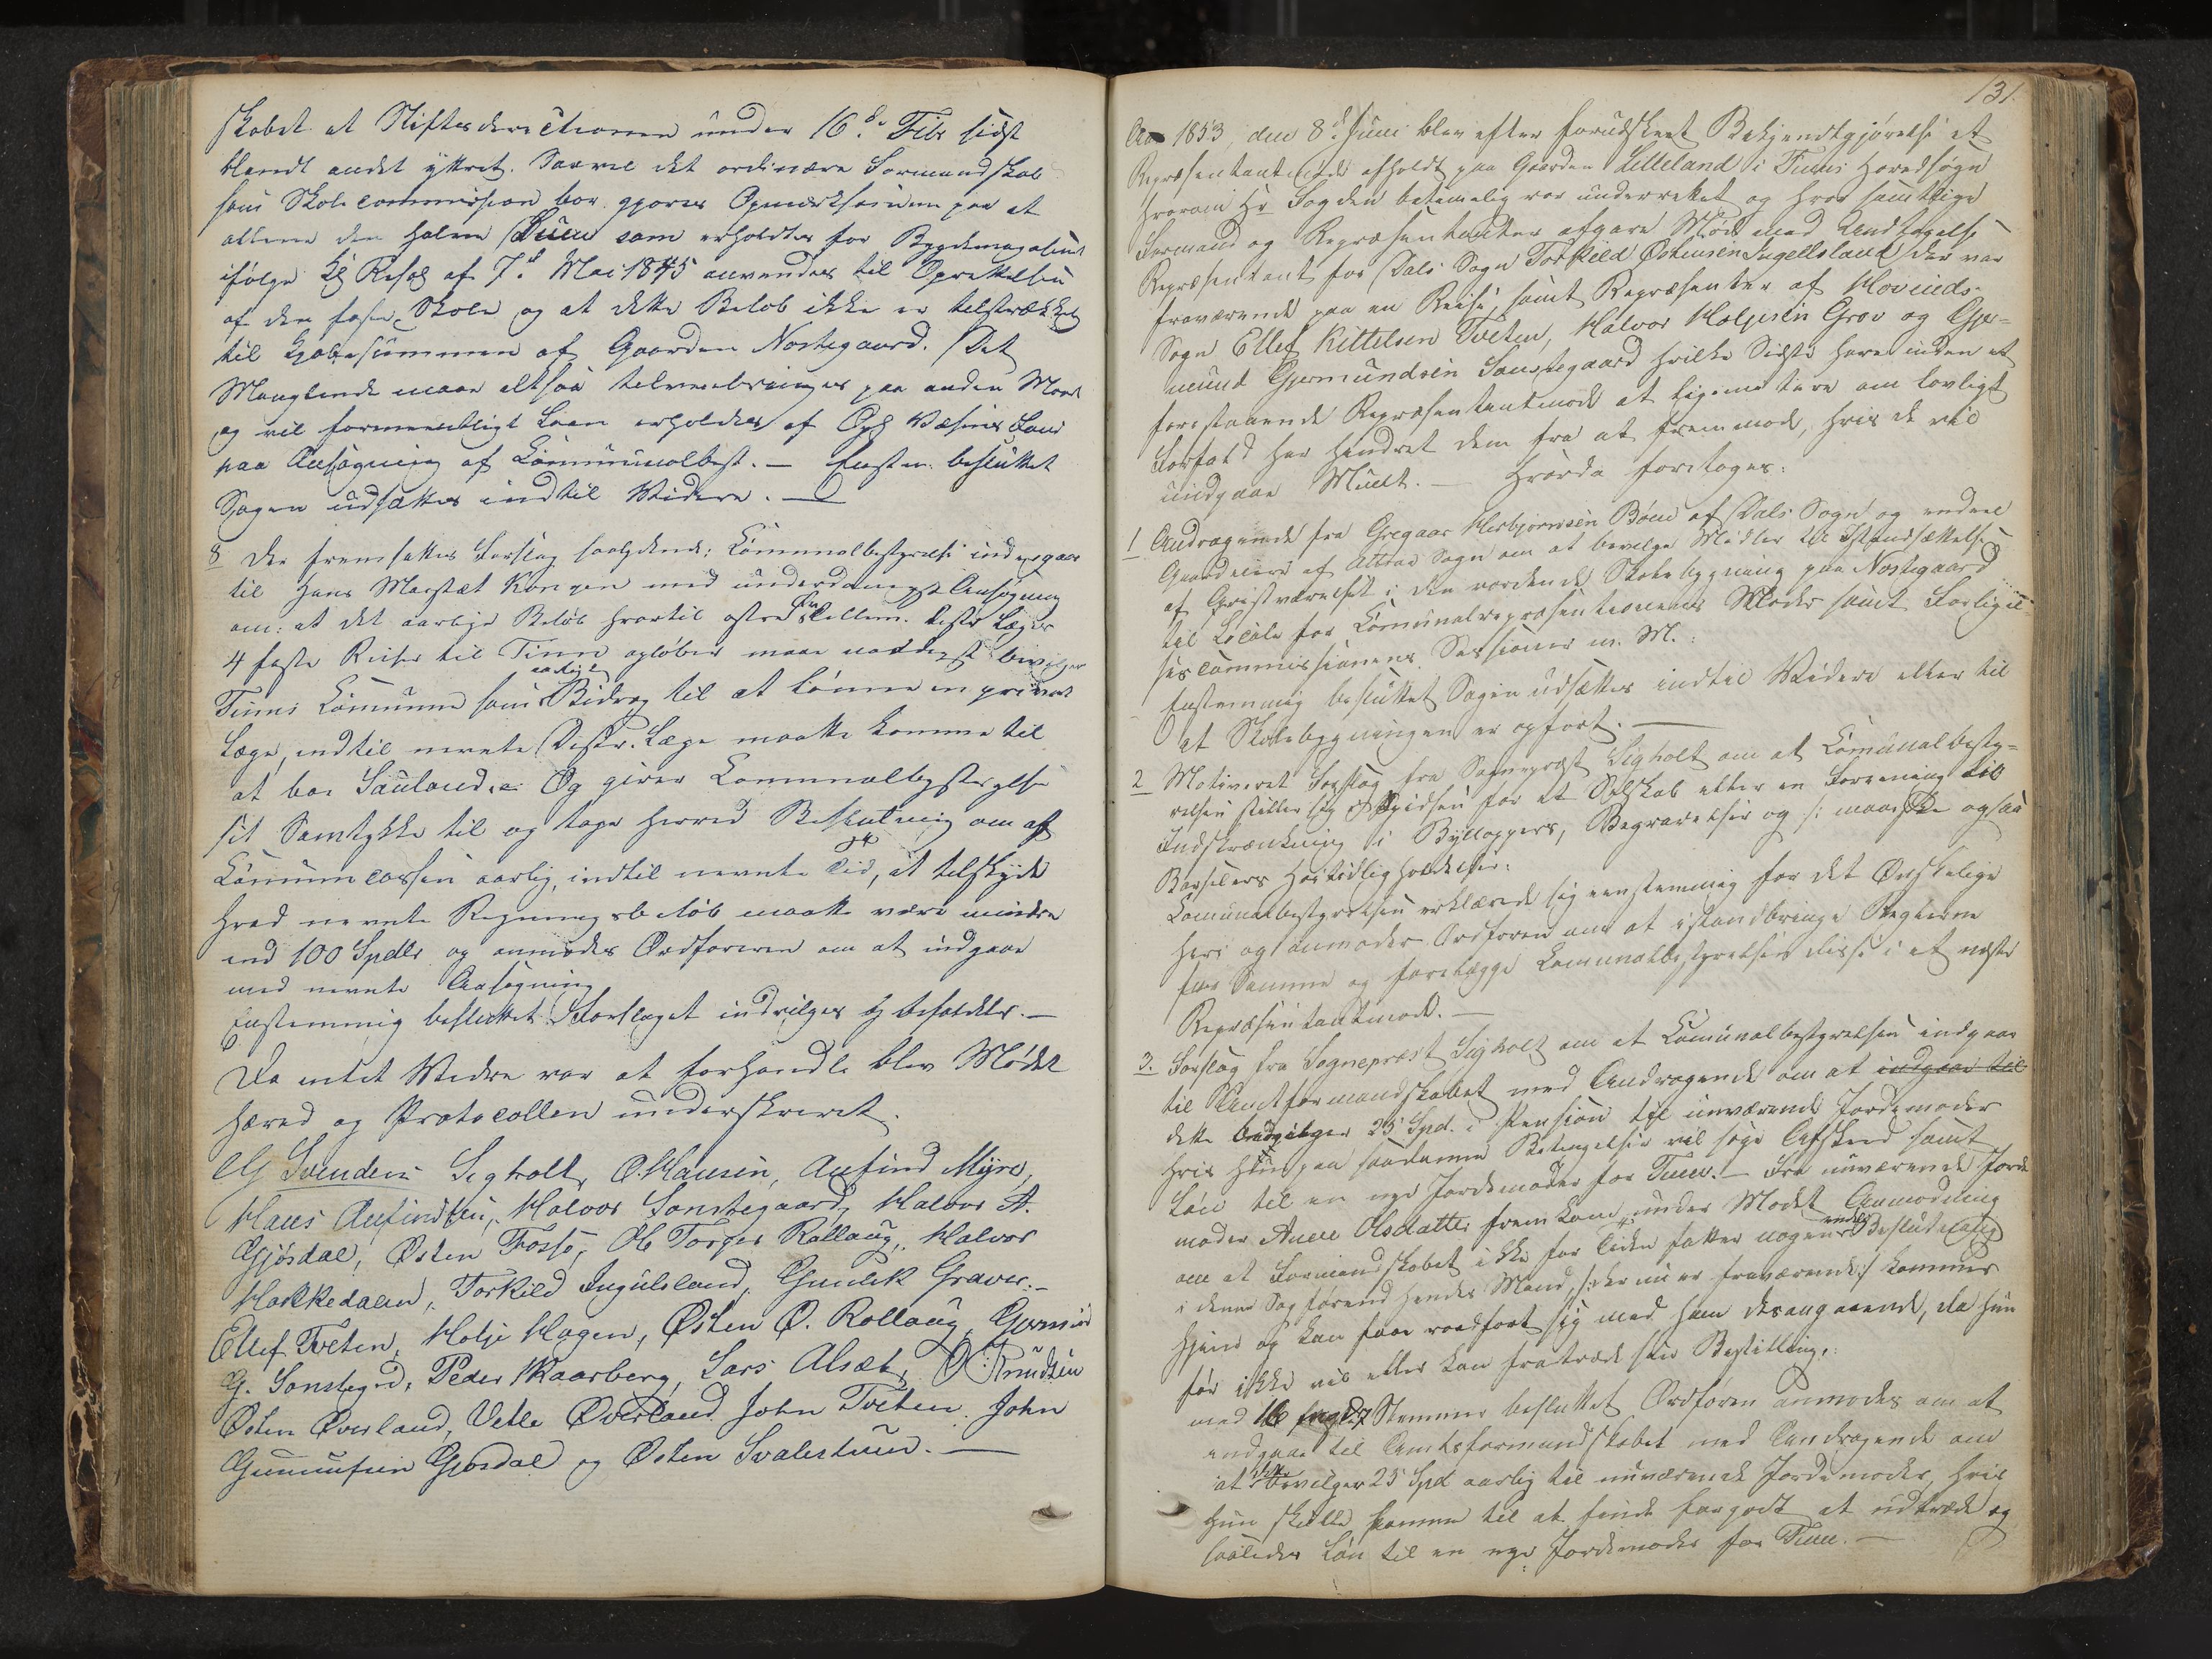 skabet at Stiftsdirectionen under 16de Febr sidst
blandt andet yttret. Saavel det ordinære Formandskab
som Skolecommission bør gjøres Opmærksomme paa at
allene den halve Sum som erholdes for Bygdemagasinet
ifølge Kg Resol af 7d Mai 1845 anvendes til Oprettelsen
af den faste Skole og at dette Beløb ikke er tilstrækkelig
til Kjøbesummen af Gaarden Nordtegaard. Det
Manglende maae altsaa tilveiebringes paa anden Maade
og vil formeentligt Laan erholdes af Opl Væsens Fond
paa Ansøgning af Communalbest. — Enstem. besluttet
Sagen udsættes indtil Videre. —
8 Der fremsattes Forslag saalydende: Communalbestyrelse indgaar
til Hans Majestæt Kongen med underdanigst Ansøgning
om: at det aarlige Beløb hvortil østre Tellem. Distr Læges
4 faste Reiser til Tinn opløber maae naadigst bevilges
Tinns Commune som aarligt Bidrag til at lønne en privat
Læge, indtil nævnte Distr. Læge maatte komme til
at boe i Sauland. Og giver Communalbestyrelse
sit Samtykke til og tage herved Beslutning om af
Communecassen aarlig, indtil nævnte Tid, at tilskyde
hvad nævnte Regningsbeløb maatte være mindre
end 100 Spdlr og anmodes Ordføreren om at indgaae
med nævnte Ansøgning
Enstemmig besluttet Forslaget indvilges og befordres. —
Da intet Videre var at forhandle blev Mødet
hævet og Protocollen underskrevet.
G Svendsen Sigholt, O. Hansen, Aufind Myre,
Hans Aufindsen, Halvor Sønstegaard, Halvor A.
Gjøsdal, Østen Fosse, Ole Torger Rollaug, Halvor
Hakkedalen, Torkild Ingulsland, Gunlek Graver. —
Ellef Tveten, Holje Hagen, Østen O. Rollaug, Germund
G. Sønstegrd, Peder Skaarberg, Lars Alsæt, O Knudsen
Østen Øverland, Vetle Øverland John Tveten John
Gunnufsen Gjøsdal og Østen Svalestuen. —
131.
Aar 1853, den 8de Juni blev efter forudskeet Bekjendtgjørelse et
Repræsentantmøde afholdt paa Gaarden Lilleland i Tinns Hovedsogn
hvorom Hr Fogden betimelig var underrettet og hvor samtlige
Formænd og Repræsentanter afgave Møde med Undtagelse
Repræsentant for Dals Sogn Torkild Østensen Ingellsland der var
fraværende paa en Reise, samt Repræsenter af Hovinds-
Sogn Ellef Kittelsen Tveten, Halvor Holjesen Grov og Gjer-
mund Gjermundsen Sønstegaard hvilke Sidste have inden et
forestaaende Repræsentantmøde at legimitere om lovligt
Forfald har hindret dem fra at fremmøde, hvis de vil
undgaae Mulct. — Hvorda foretoges:
1 Andragende fra Gregaar Herbjørnsen Bøen af Dals Sogn og endeel
Gaardeiere af Attraa Sogn om at bevilge Midler til Istandsættelse
af Gjestværelset i den vordende Skolebygning paa Nordtegaard
til Locale for Communalrepræsentationens Møder samt Forligel-
sescommissionens Sessioner m. M.:
Enstemmig besluttet Sagen udsættes indtil Videre eller til
at Skolebygningen er opført. —
2 Motiveret Forslag fra Sognepræst Sigholt om at Communalbesty-
relsen stiller sig i Spidsen for et Selskab eller en Forening til
Indskrænkning i Bryllupper, Begravelser og /: maaske ogsaa
Barselers Høitidligholdelser:
Communalbestyrelsen erklærede sig eenstemmig for det Ønskelige
heri og anmoder Ordføren om at istandbringe Reglerne
for Samme og forelægge Communalbestyrelsen disse i et næste
Repræsentantmøde. —
3. Forslag fra Sognepræst Sigholt om at Communalbestyrelsen indgaar
til Amtsformandskabet med Andragende om at indgaae til
dette bevilger 25 Spd. i Pension til nuværende Jordemoder
hvis Hun paa saadanne Betingelser vil søge Afsked samt
Løn til en nye Jordemoder for Tinn. — Fra nuværende Jorde
moder Anne Olsdatter fremkom under Mødet Anmodning
om at Formandskabet ikke for Tiden fatter nogen endelig Beslutning
i denne Sag førend hendes Mand, /: der nu er fraværende :/ kommer
hjem og kan faae raadført sig med ham desangaaende, da hun
før ikke vil eller kan fratræde sin Bestilling.
med 16 mod 7 Stemmer besluttet Ordføren anmodes om at
indgaae til Amtsformandskabet med Andragende om
at dette bevilger 25 Spd aarlig til nuværende Jordemoder, hvis
hun skulle komme til at finde forgodt at udtræde og
saaledes Løn til en nye Jordemoder for Tinn. —